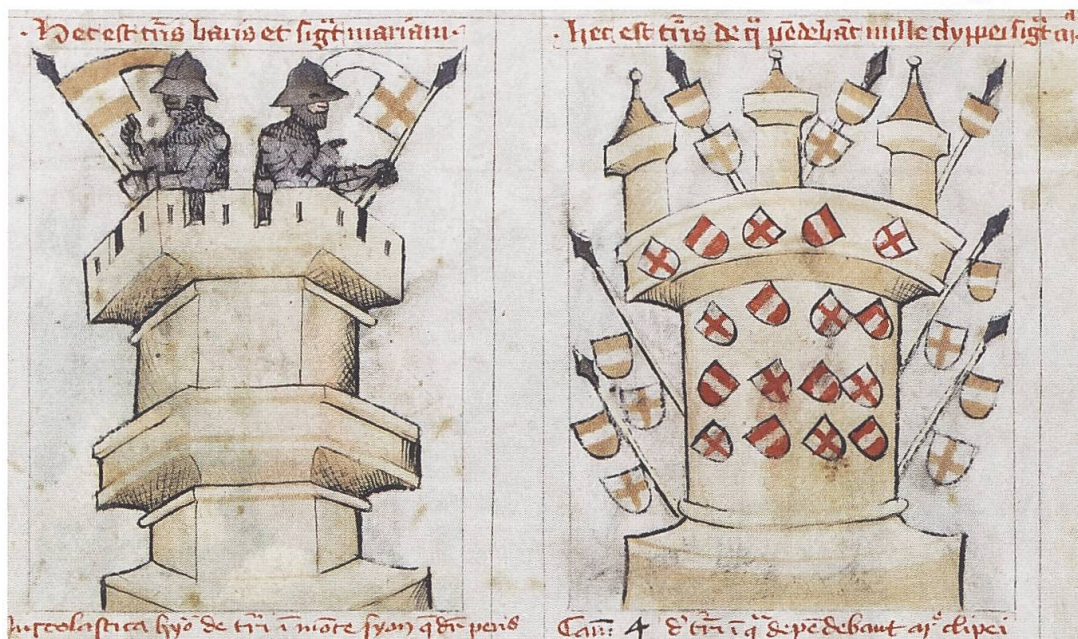 Hec est tu͞ris baris et sigt mariam
hec est tu͞ris de q̄ pēdebāt mille clyppei sigt̄
scolastica hyō de tr̄i ī mōte syon q̄ dr̄
Cam̄ 4 d' tr̄i ī q̄ depēdebant clipei